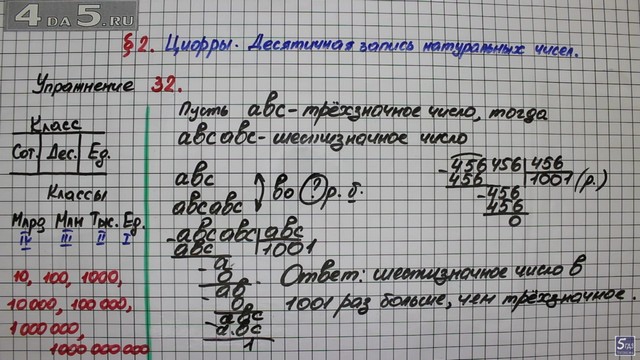 4DA5.RU
§2. Цифры. Десятичная запись натуральных чисел.
Упражнение 32.
Класс
Сот. Дес. Ед.
Классы
Млрд Млн Тыс. Ед.
IV III II I
10, 100, 1000,
10 000, 100 000,
1 000 000,
1000 000 000
Пусть авс - трёхзначное число, тогда
авс авс - шестизначное число
авс
авсавс
во ? р. б.
- авс авс | авс
авс | 1001
- а
0
- ав
0
- авс
авс
1
- 456 456 | 456
456 | 1001 (р.)
- 456
456
0
Ответ: шестизначное число в
1001 раз больше, чем трёхзначное.